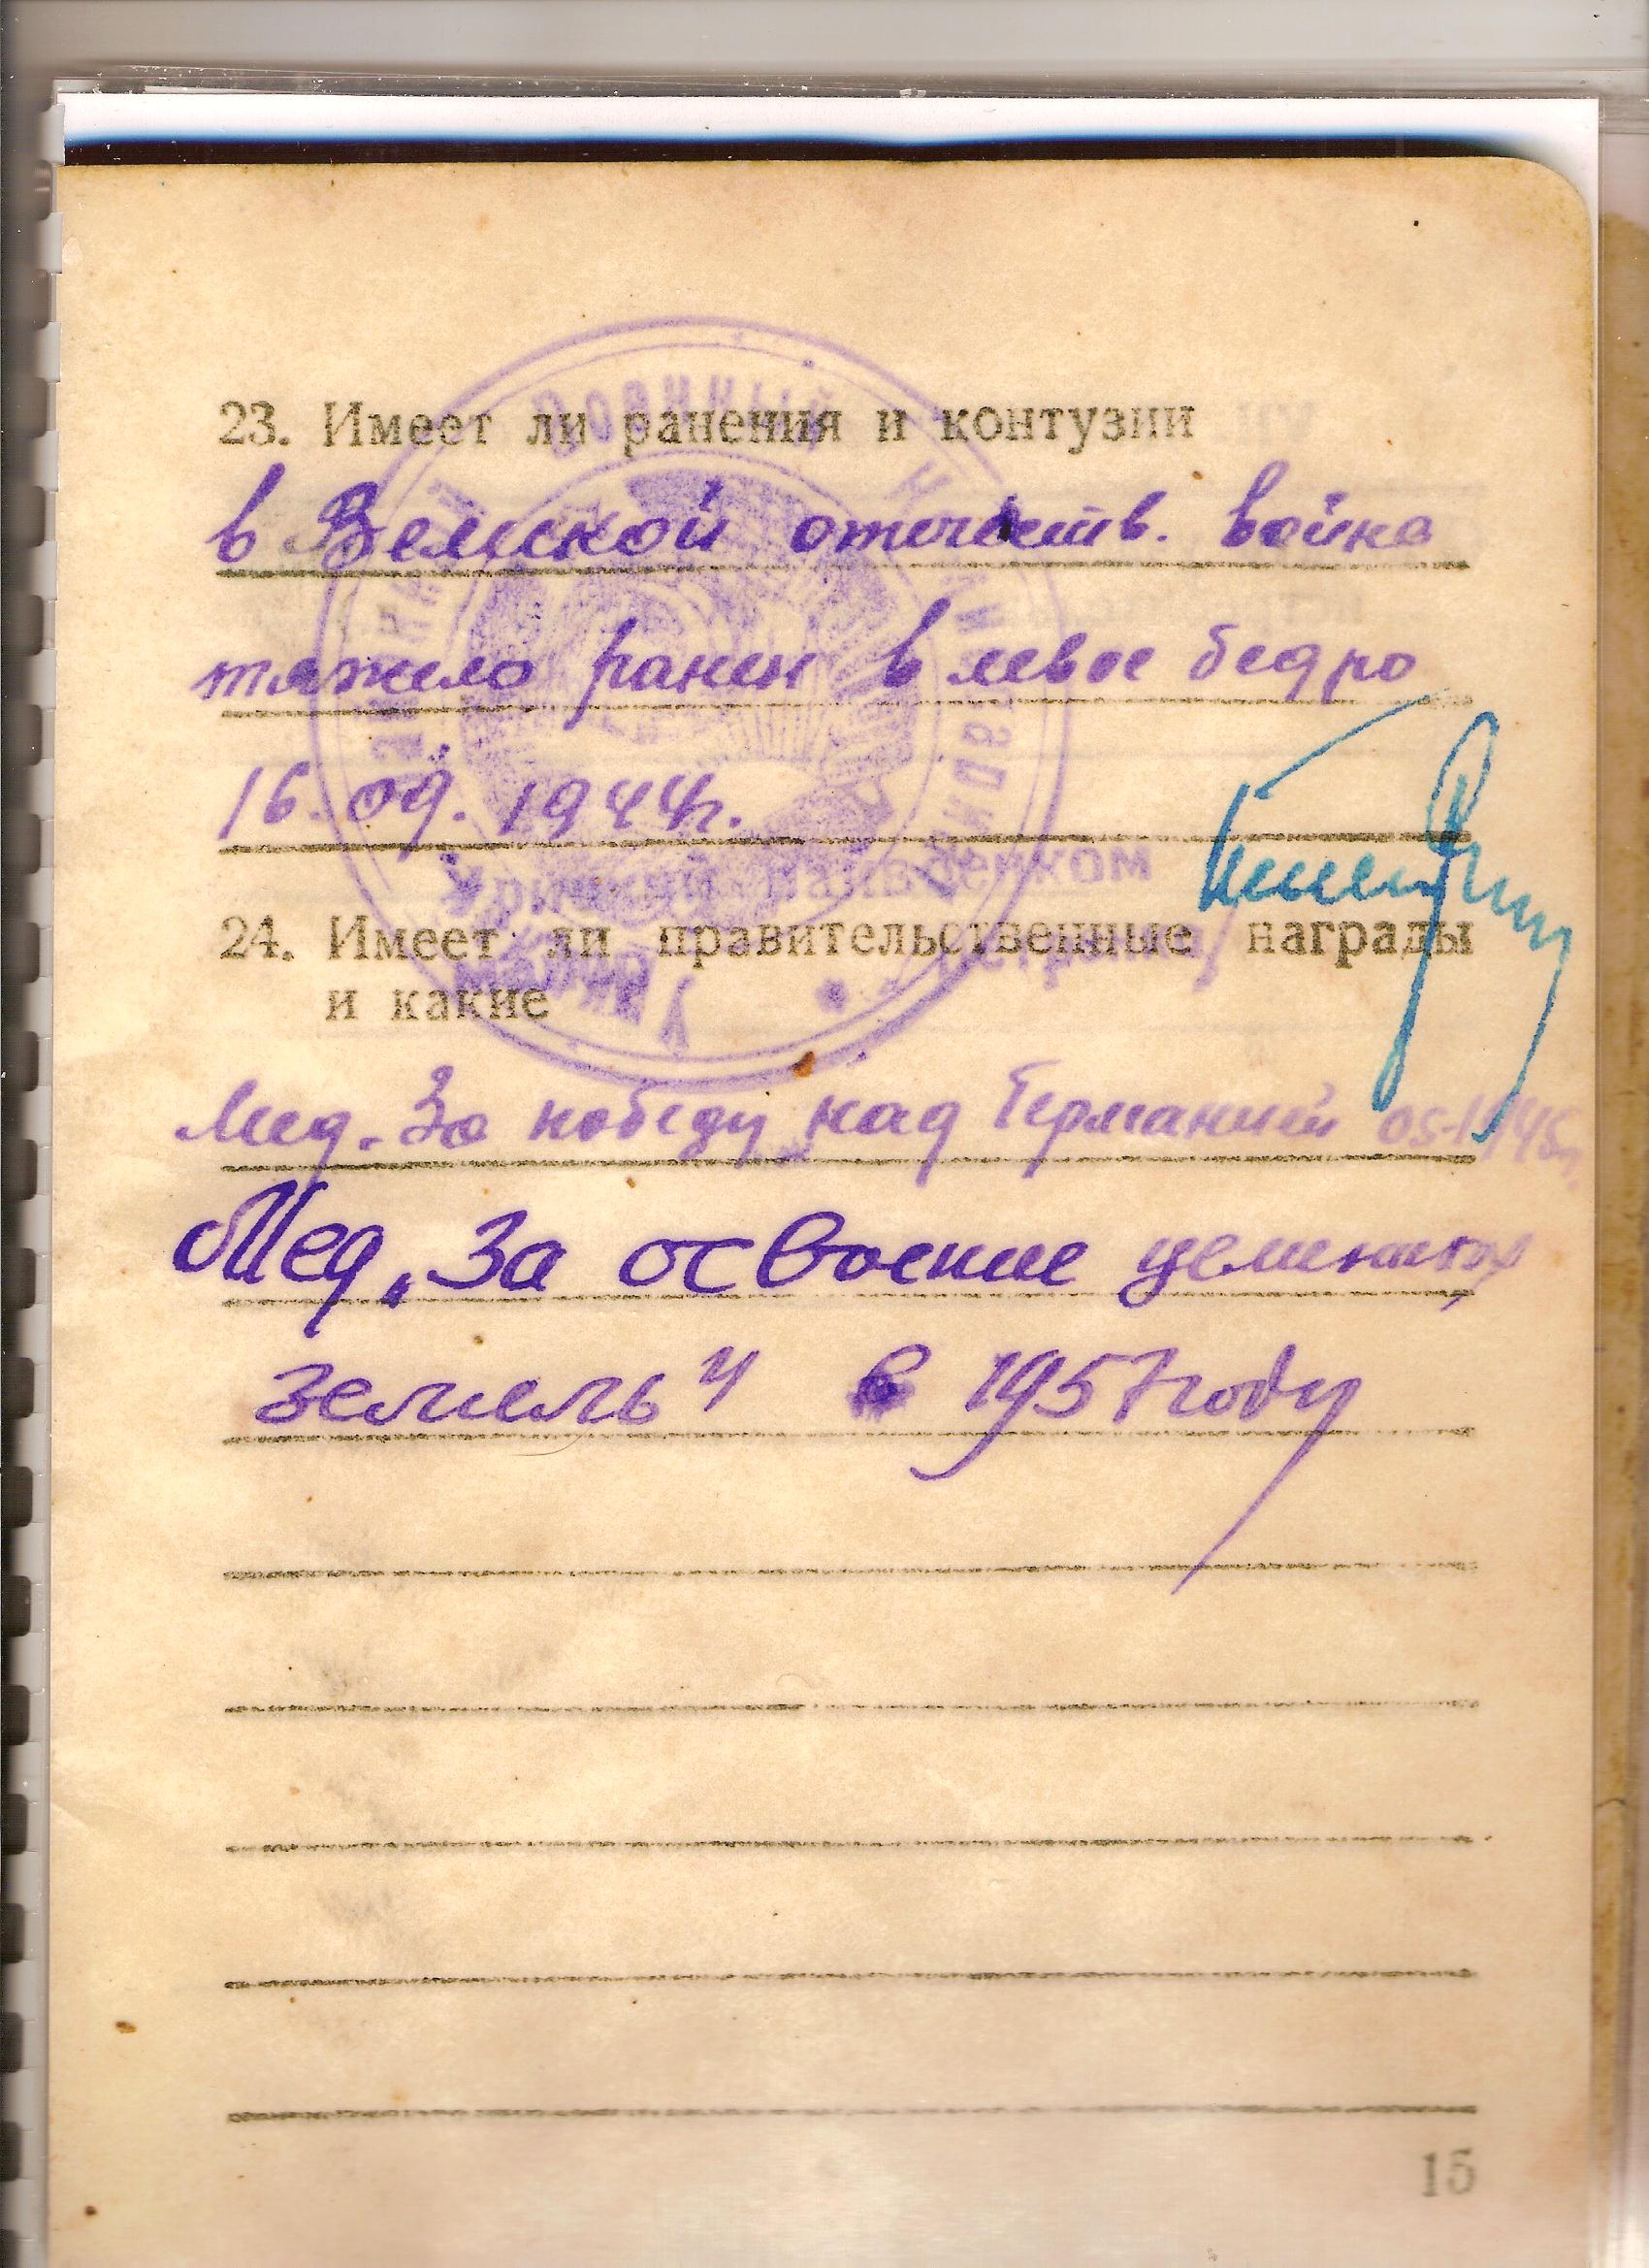 23. Имеет ли ранения и контузии
в Великой отечеств. войне
тяжело ранен в левое бедро
16.09.1944г.
24. Имеет ли правительственные награды
и какие
Мед. За победу над Германией 05-1945г.
Мед „За освоение целинных
земель" в 1957 году
15